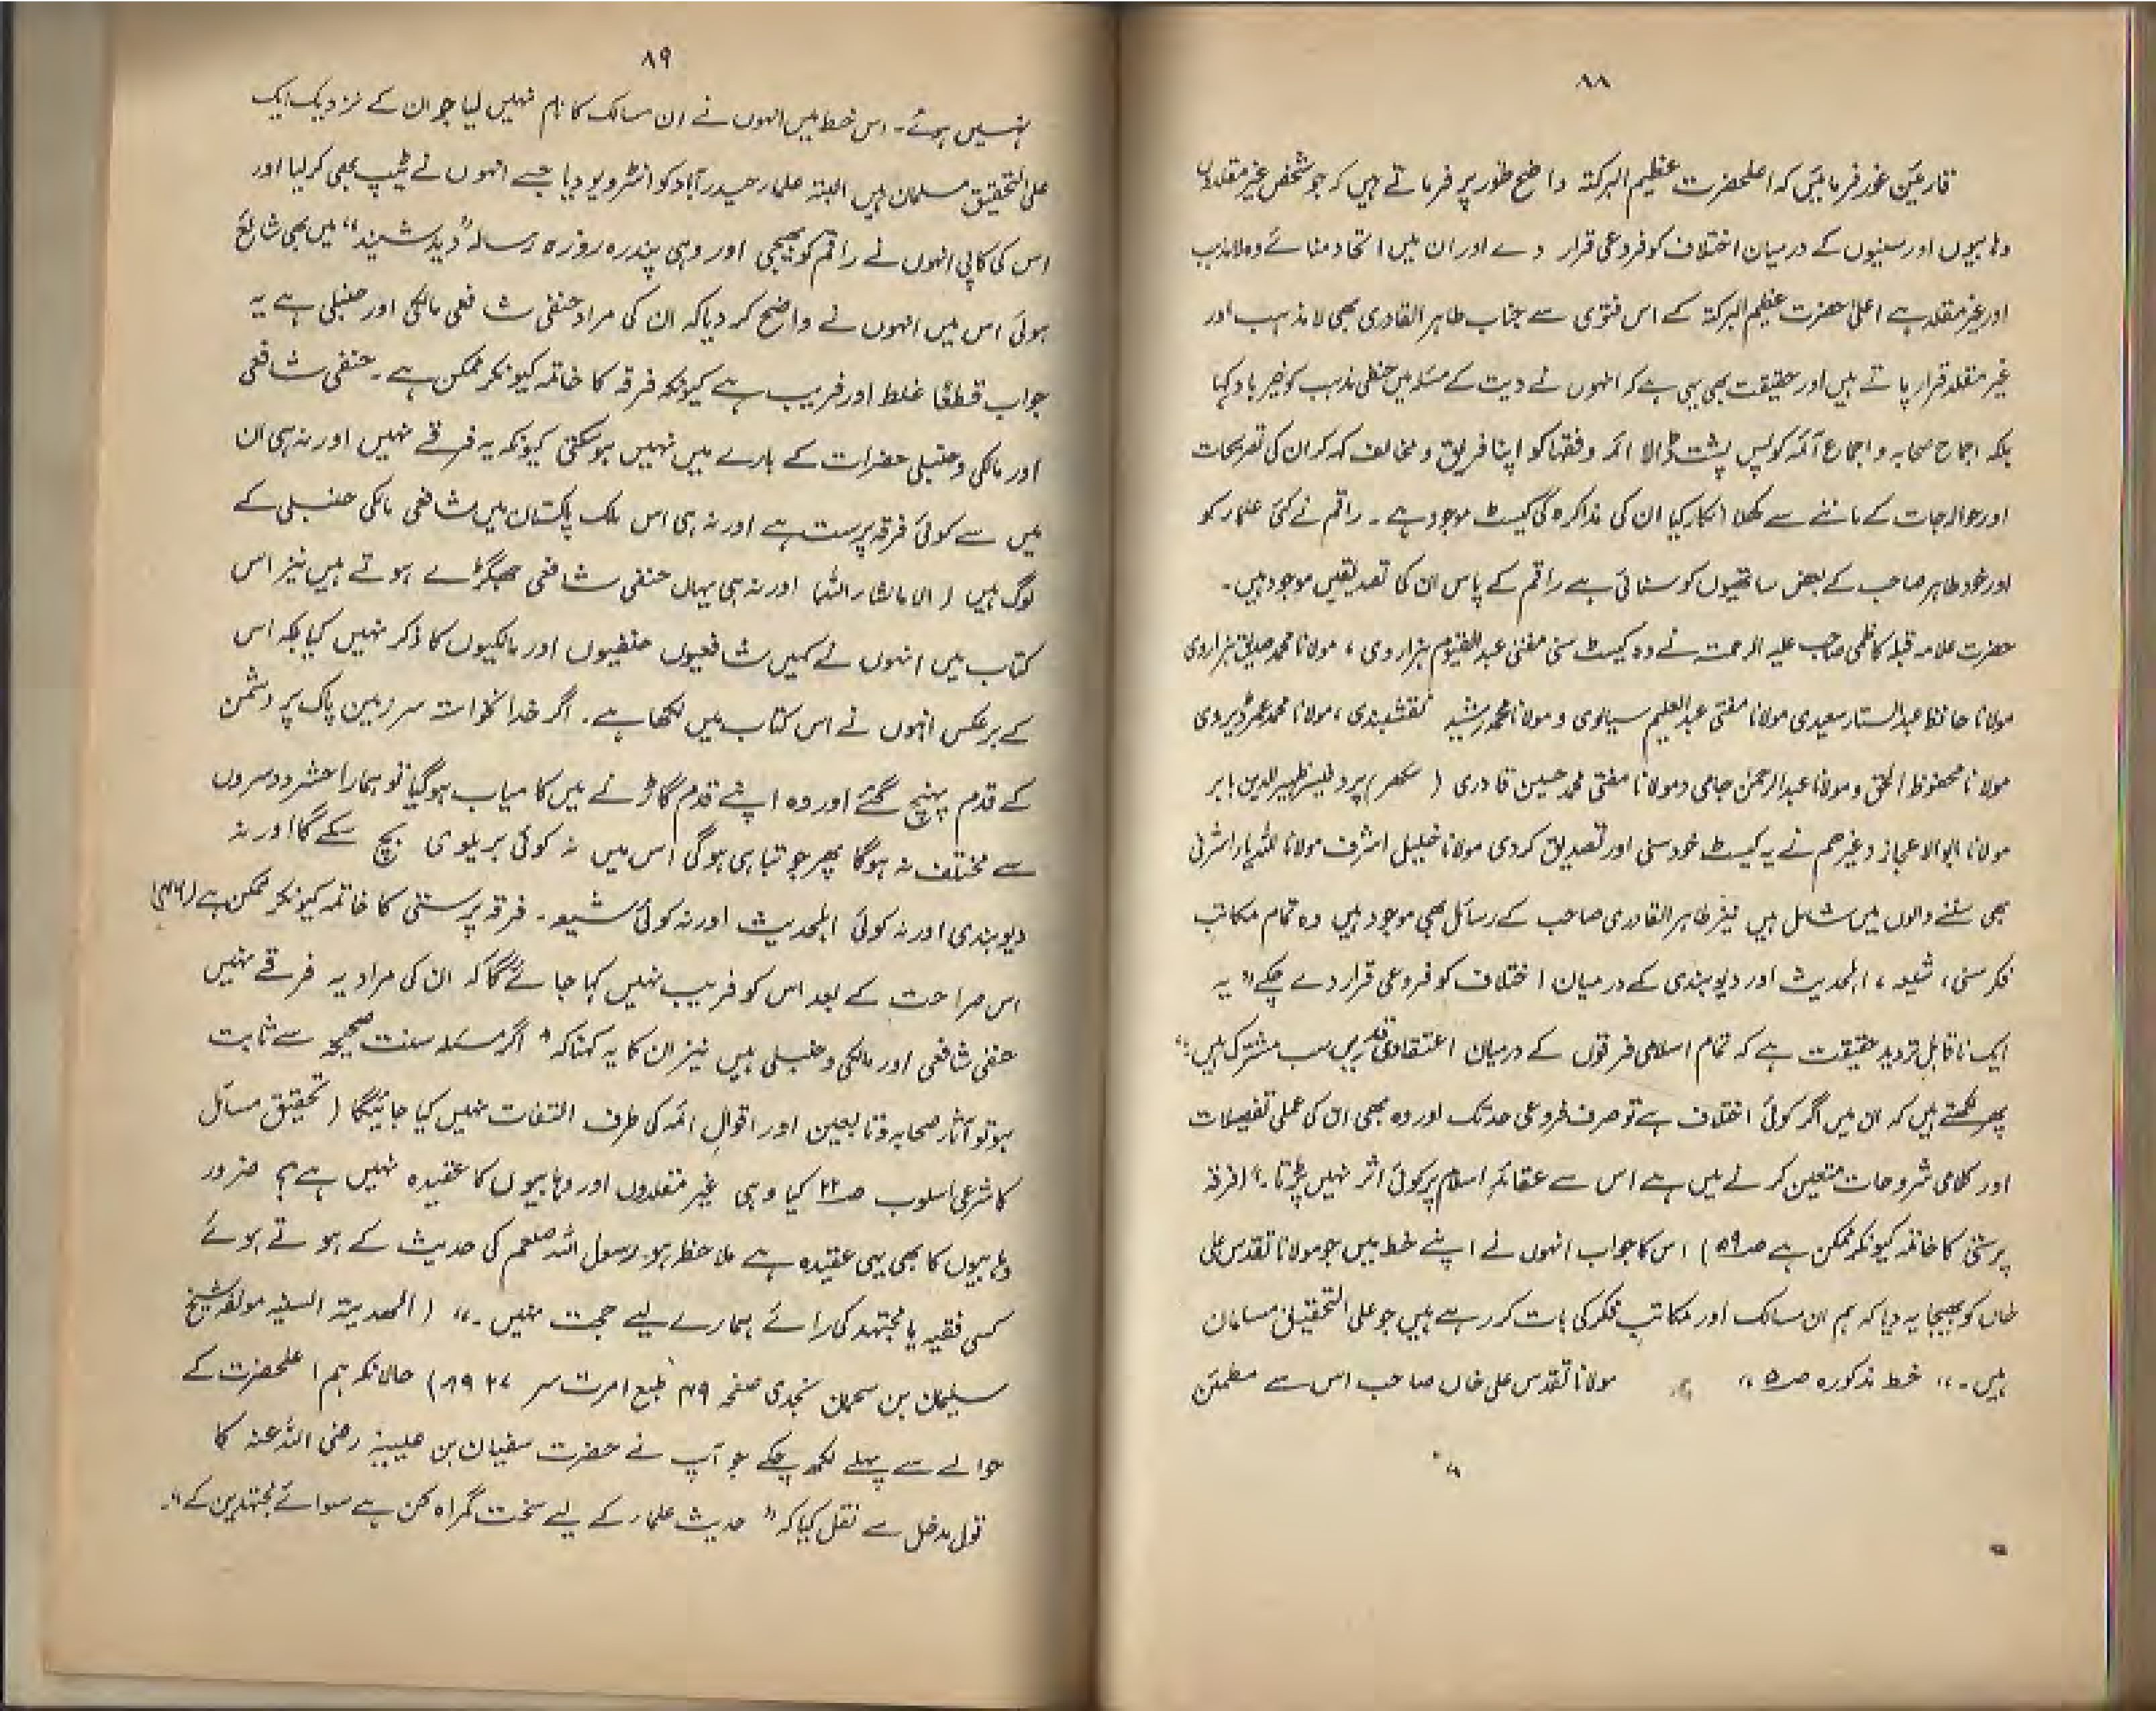 ۸۸
قارئین غور فرمائیں کہ اعلحضرت عظیم البرکتہ واضح طور پر فرماتے ہیں کہ جو شخص غیر مقلدوں
وہابیوں اور سنیوں کے درمیان اختلاف کو فروعی قرار دے اور ان میں اتحاد منائے وہ لامذہب
اور غیر مقلد ہے اعلیٰ حضرت عظیم البرکتہ کے اس فتوٰی سے جناب طاہر القادری بھی لا مذہب اور
غیر مقلد قرار پاتے ہیں اور حقیقت بھی یہی ہے کہ انہوں نے دیت کے مسئلہ میں حنفی مذہب کو خیر باد کہا
بلکہ اجماع صحابہ و اجماع آئمہ کو پس پشت ڈالا ائمہ و فقہا کو اپنا فریق و مخالف کہہ کر ان کی تصریحات
اور حوالہ جات کے ماننے سے کھلا انکار کیا ان کی مذاکرہ کی کیسٹ موجود ہے ۔ راقم نے کئی علماء کو
اور خود طاہر صاحب کے بعض ساتھیوں کو سنائی ہے راقم کے پاس ان کا تصدیقیں موجود ہیں ۔
حضرت علامہ قبلہ کاظمی صاحب علیہ الرحمتہ نے وہ کیسٹ سنی مفتی عبدالقیوم ہزاروی ، مولانا محمد صدیق ہزاروی
مولانا حافظ عبدالستار سعیدی مولانا مفتی عبدالعلیم سیالوی و مولانا محمد رشید نقشبندی ، مولانا محمد عمر ڈیروی
مولانا محفوظ الحق و مولانا عبدالرحمٰن جامی و مولانا مفتی محمد حسین قادری ( سکھر ) پروفیسر ظہیر الدین بابر
مولانا ابوالاعجاز وغیرھم نے یہ کیسٹ خود سنی اور تصدیق کر دی مولانا خلیل اشرف مولانا اللہ یار اشرفی
بھی سننے والوں میں شامل ہیں نیز طاہر القادری صاحب کے رسائل بھی موجود ہیں وہ تمام مکاتب
فکر سنی ، شیعہ ، اہلحدیث اور دیوبندی کے درمیان اختلاف کو فروعی قرار دے چکے " یہ
ایک ناقابل تردید حقیقت ہے کہ تمام اسلامی فرقوں کے درمیان اعتقادی قدریں سب مشترک ہیں :"
پھر لکھتے ہیں کہ ان میں اگر کوئی اختلاف ہے تو صرف فروعی حد تک اور وہ بھی ان کی عملی تفصیلات
اور کلامی شروحات متعین کرنے میں ہے اس سے عقائد اسلام پر کوئی اثر نہیں پڑتا ۔" ( فرقہ
پرستی کا خاتمہ کیونکر ممکن ہے صـ۵۹ ) اس کا جواب انہوں نے اپنے خط میں جو مولانا تقدس علی
خاں کو بھیجا یہ دیا کہ ہم ان مسالک اور مکاتب فکر کی بات کر رہے ہیں جو علی التحقیق مسلمان
ہیں ۔ " خط مذکورہ صـ۵ " مولانا تقدس علی خاں صاحب اس سے مطمئن
۸۹
نہیں ہوئے ۔ اس خط میں انہوں نے ان مسالک کا نام نہیں لیا جو ان کے نزدیک ایک
علی التحقیق مسلمان ہیں البتہ علماء حیدرآباد کو انٹرویو دیا جسے انہوں نے ٹیپ بھی کر لیا اور
اس کی کاپی انہوں نے راقم کو بھیجی اور وہی پندرہ روزہ رسالہ " دید شنید " میں بھی شائع
ہوئی اس میں انہوں نے واضح کر دیا کہ ان کی مراد حنفی شافعی مالکی اور حنبلی ہے یہ
جواب قطعًا غلط اور فریب ہے کیونکہ فرقہ کا خاتمہ کیونکر ممکن ہے ۔ حنفی شافعی
اور مالکی و حنبلی حضرات کے بارے میں نہیں ہو سکتی کیونکہ یہ فرقے نہیں اور نہ ہی ان
میں سے کوئی فرقہ پرست ہے اور نہ ہی اس ملک پاکستان میں شافعی مالکی حنبلی کے
لوگ ہیں ( الا ماشاء اللہ ) اور نہ ہی یہاں حنفی شافعی جھگڑے ہوتے ہیں نیز اس
کتاب میں انہوں نے کہیں شافعیوں حنفیوں اور مالکیوں کا ذکر نہیں کیا بلکہ اس
کے برعکس انہوں نے اس کتاب میں لکھا ہے ۔ اگر خدا نخواستہ سر زمین پاک پر دشمن
کے قدم پہنچ گئے اور وہ اپنے قدم گاڑنے میں کامیاب ہو گیا تو ہمارا حشر دوسروں
سے مختلف نہ ہوگا پھر جو تباہی ہوگی اس میں نہ کوئی بریلوی بچ سکے گا اور نہ
دیوبندی اور نہ کوئی اہلحدیث اور نہ کوئی شیعہ ۔ فرقہ پرستی کا خاتمہ کیونکر ممکن ہے
اس صراحت کے بعد اس کو فریب نہیں کہا جائے گا کہ ان کی مراد یہ فرقے نہیں
حنفی شافعی اور مالکی و حنبلی ہیں نیز ان کا یہ کہنا کہ " اگر مسئلہ سنت صحیحہ سے ثابت
ہو تو آثار صحابہ و تابعین اور اقوال ائمہ کی طرف التفات نہیں کیا جائیگا ( تحقیق مسائل
کا شرعی اسلوب صـ۲۲ کیا وہی غیر مقلدوں اور وہابیوں کا عقیدہ نہیں ہے ؟ ضرور
وہابیوں کا بھی یہی عقیدہ ہے ملاحظہ ہو ۔ رسول اللہ صلعم کی حدیث کے ہوتے ہوئے
کسی فقیہ یا مجتہد کی رائے ہمارے لیے حجت نہیں ۔ " ( الھدیۃ السنیہ مولفہ شیخ
سلیمان بن سحمان نجدی صفحہ ۴۹ طبع امرتسر ۱۹۲۷ ) حالانکہ ہم اعلحضرت کے
حوالے سے پہلے لکھ چکے جو آپ نے حضرت سفیان بن عیینہ رضی اللہ عنہ کا
قول مدخل سے نقل کیا کہ " حدیث علماء کے لیے سخت گمراہ کن ہے سوائے مجتہدین کے "۔